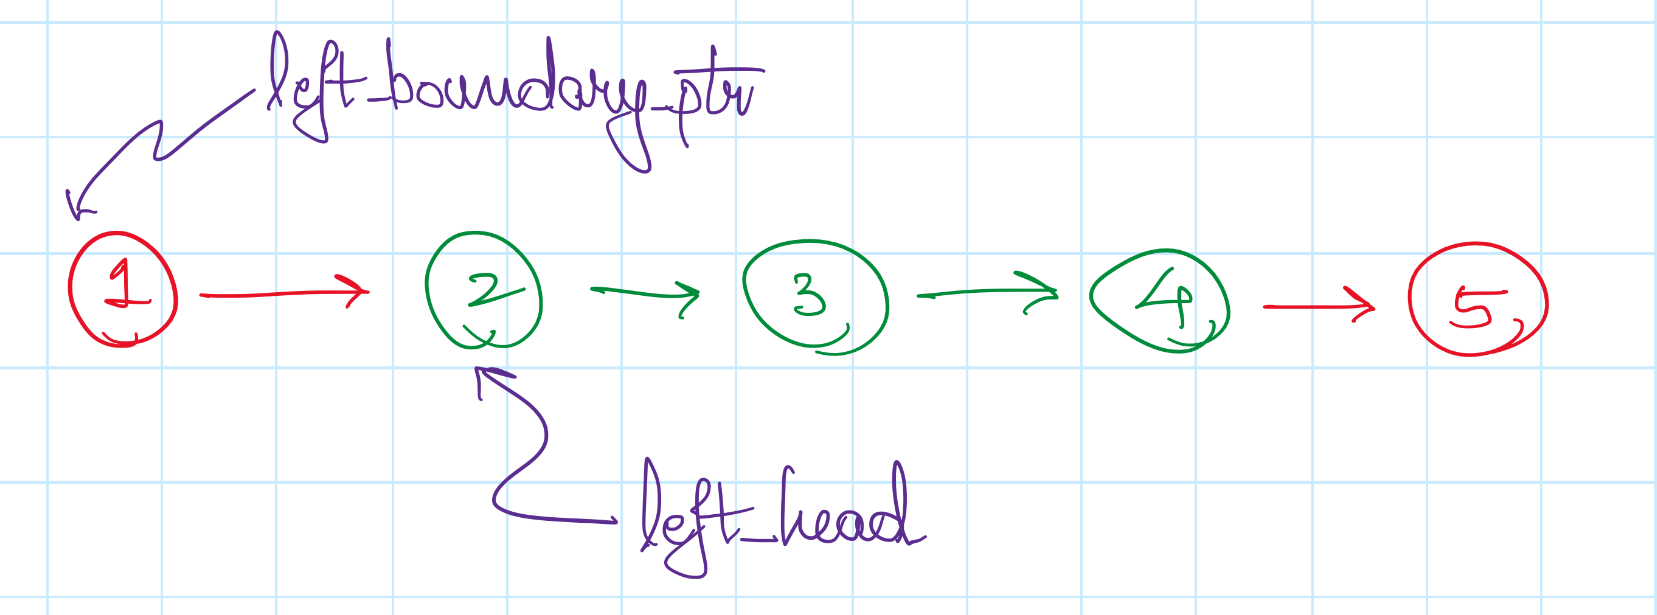 left_boundary_ptr
1 2 3 4 5
left_head